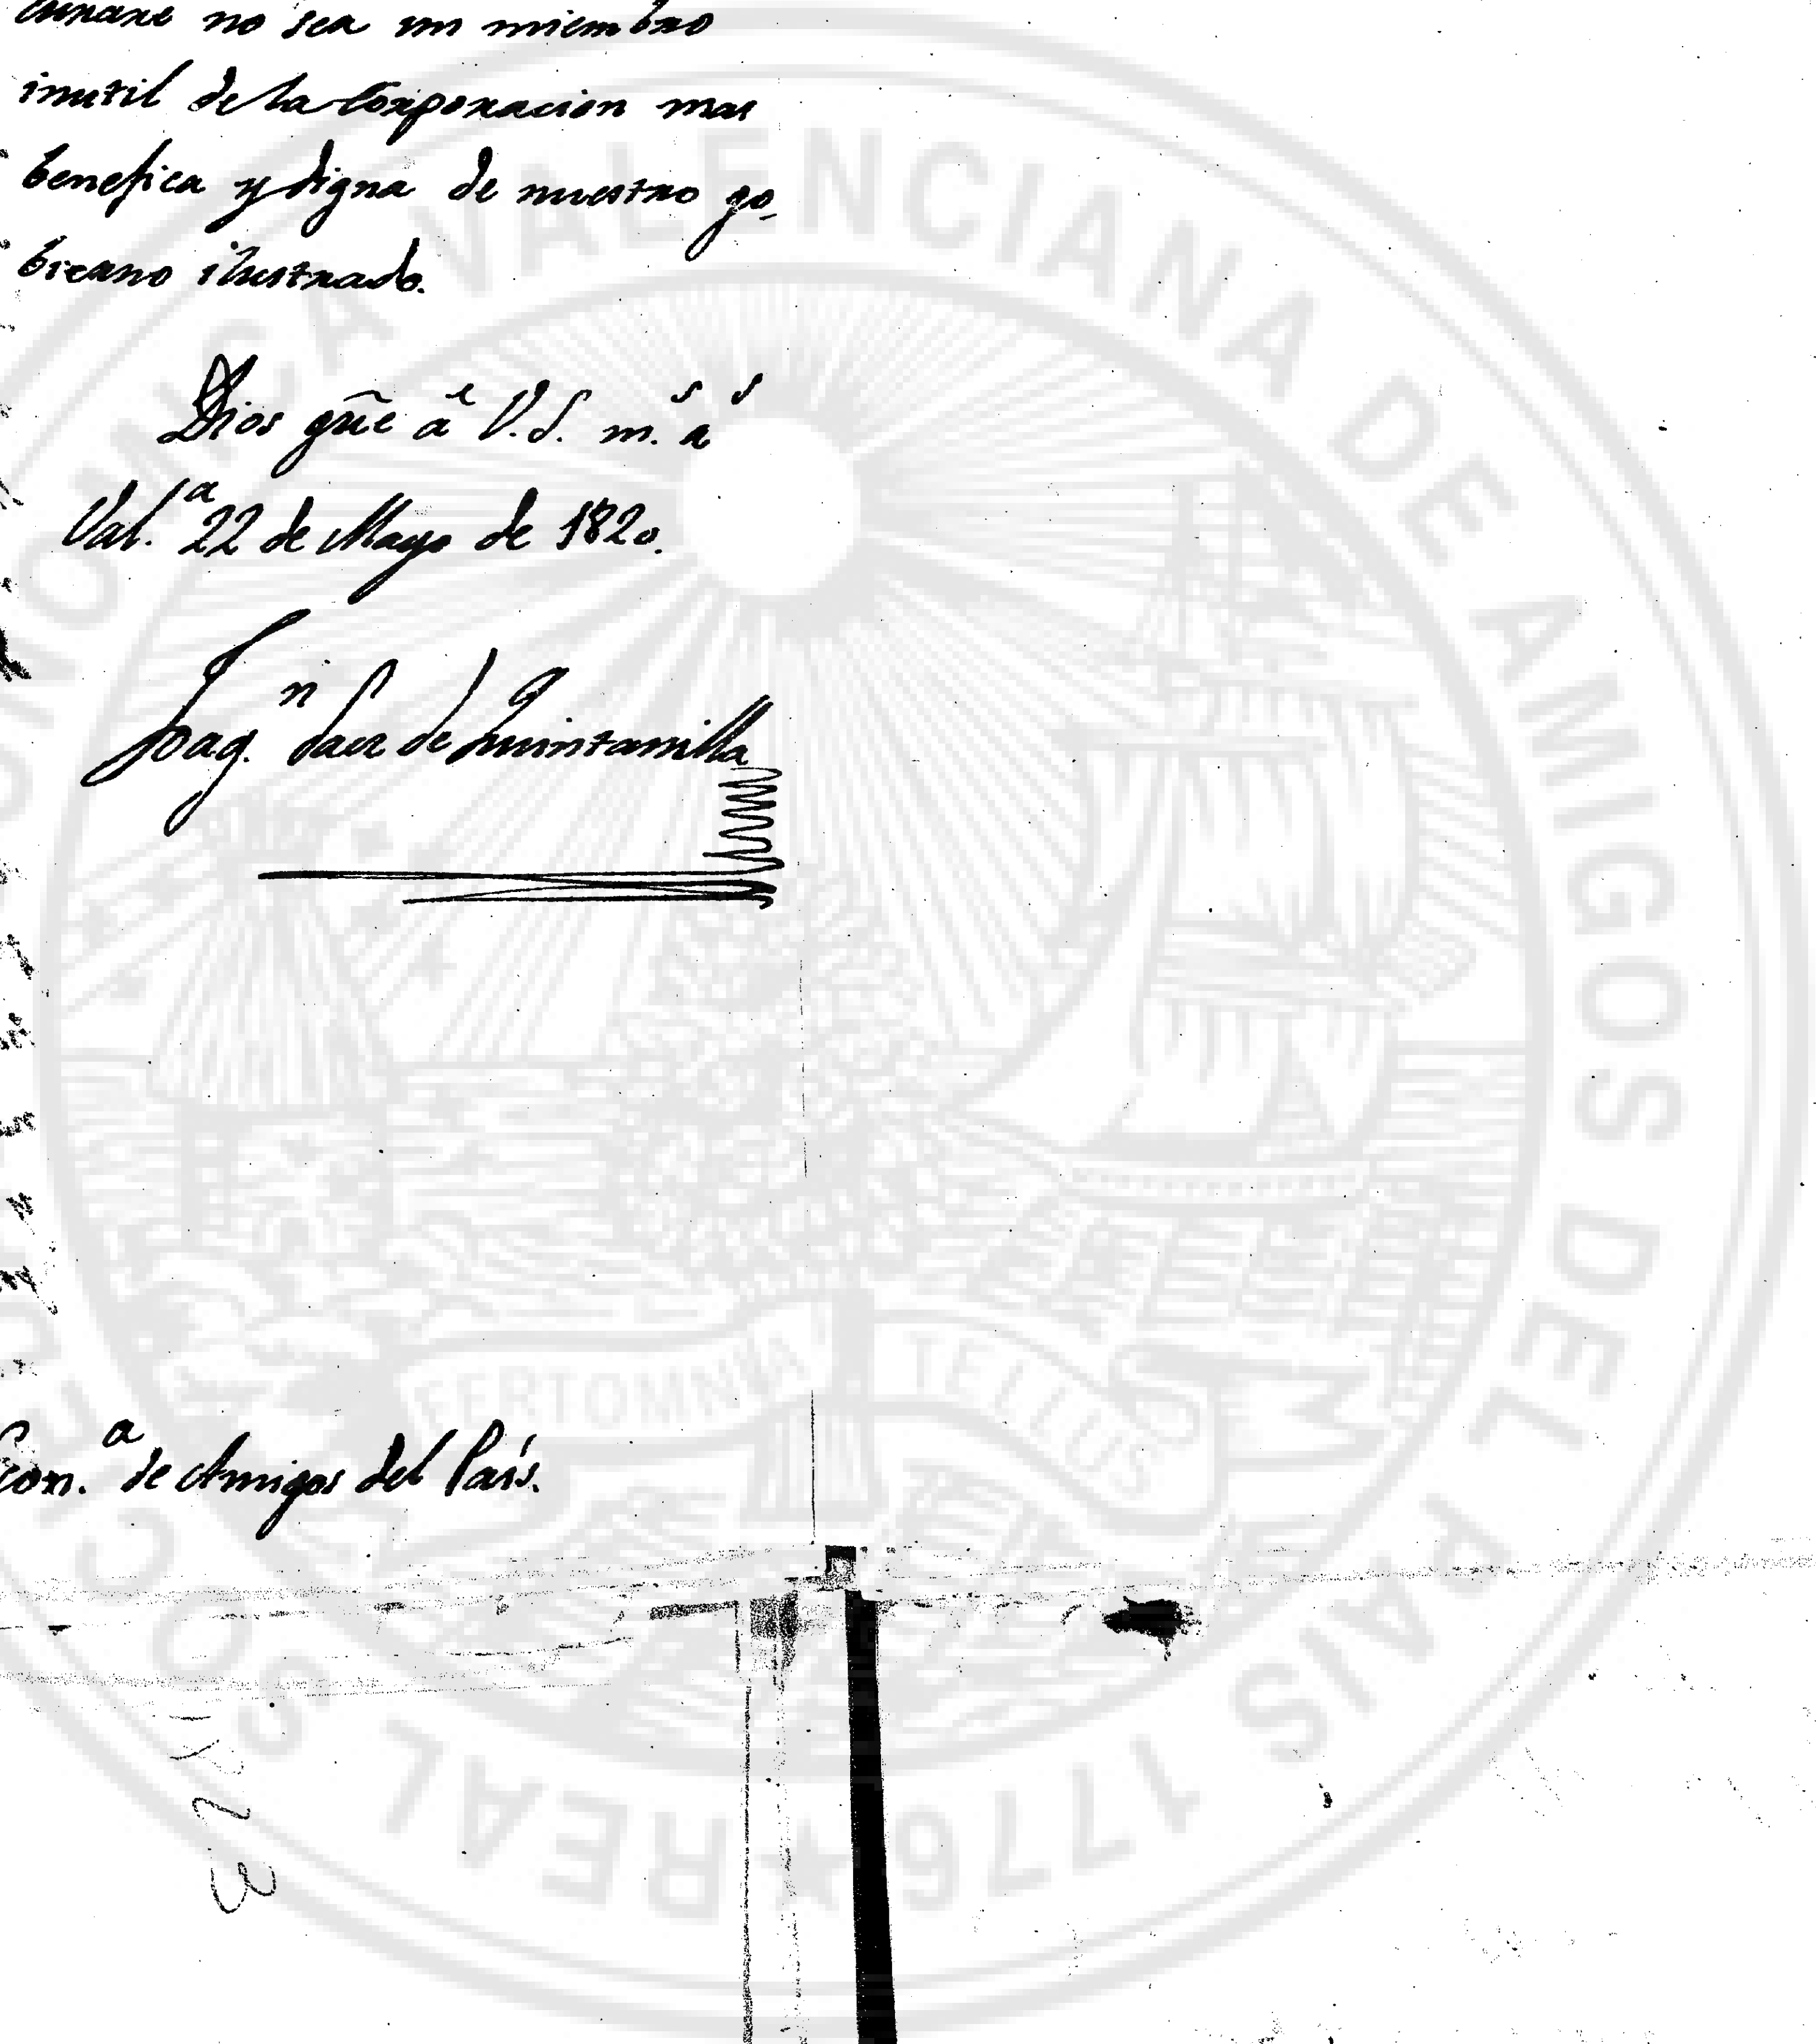 no sea un miembro
inutil de la Corporacion mas
benefica y digna de nuestro go-
bierno ilustrado.
Dios gũe a V.S. m.s a.s
Val.a 22 de Mayo de 1820.
Joaq.n Saez de Quintanilla
Econ.a de Amigos del País.
VALENCIANA DE AMIGOS DEL PAIS 1776 ★ REAL
FERT OMNIA TELLUS